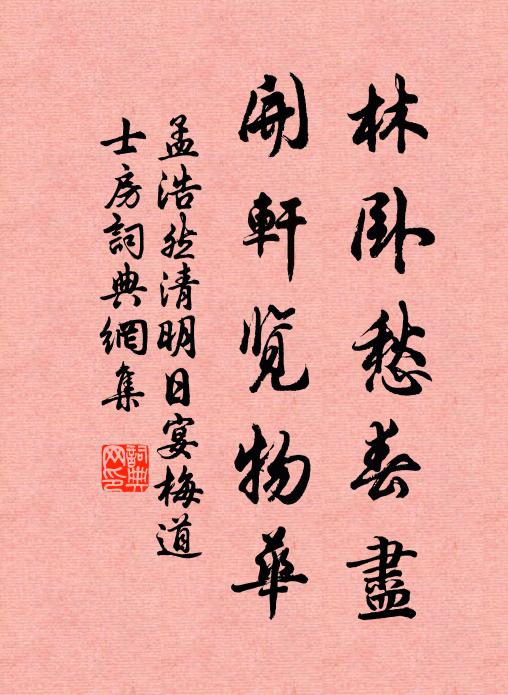 林卧愁春盡
開軒覽物華
孟浩然清明日宴梅道
士房詞典網集
詞典网印